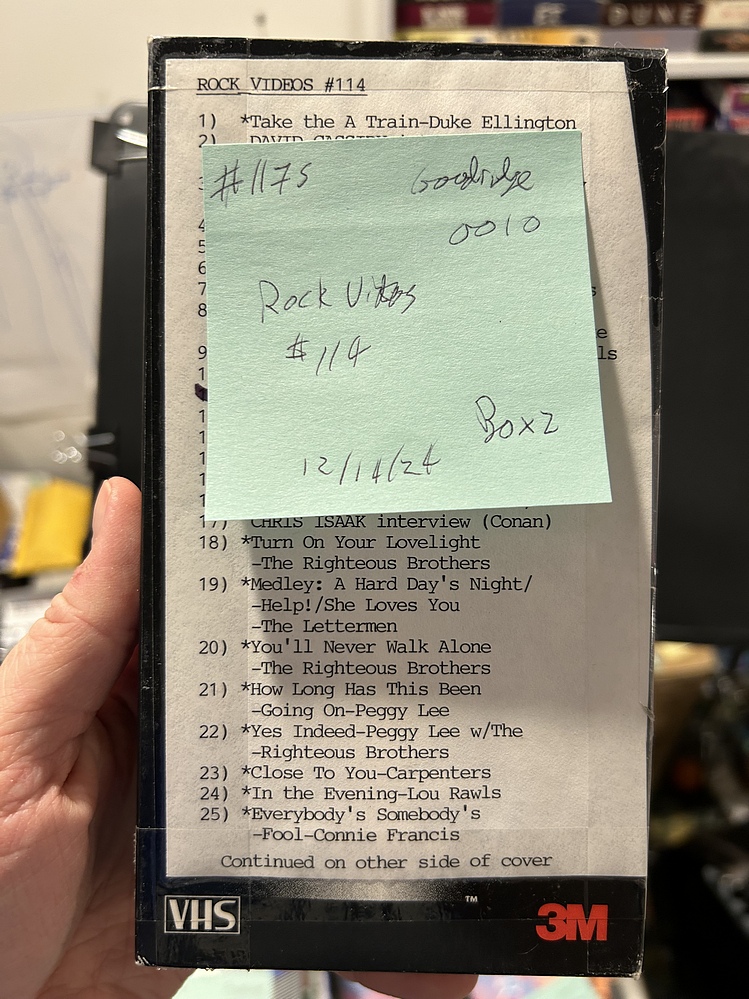 DUNE
ROCK VIDEOS #114
1) *Take the A Train-Duke Ellington
2) DAVID CASSIDY
#1175
Goodridge
0010
4
5
6
7
8
9
Rock Videos
#114
Box 2
12/14/24
s
e
ls
17) CHRIS ISAAK interview (Conan)
18) *Turn On Your Lovelight
-The Righteous Brothers
19) *Medley: A Hard Day's Night/
-Help!/She Loves You
-The Lettermen
20) *You'll Never Walk Alone
-The Righteous Brothers
21) *How Long Has This Been
-Going On-Peggy Lee
22) *Yes Indeed-Peggy Lee w/The
-Righteous Brothers
23) *Close To You-Carpenters
24) *In the Evening-Lou Rawls
25) *Everybody's Somebody's
-Fool-Connie Francis
Continued on other side of cover
VHS
™
3M